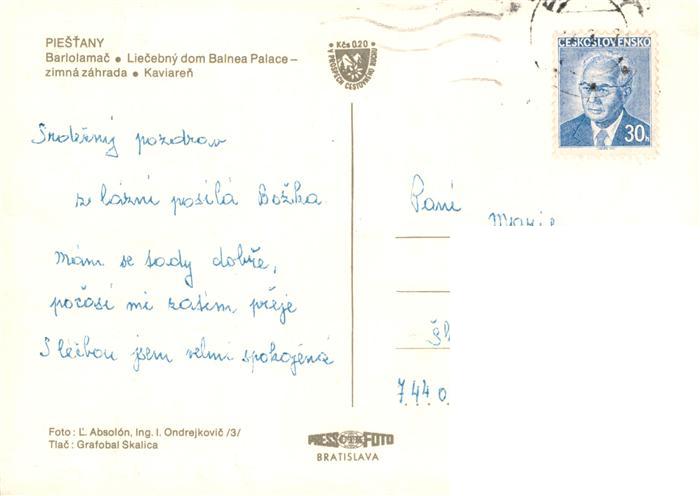 PIEŠŤANY
Barlolamač ● Liečebný dom Balnea Palace –
zimná záhrada ● Kaviareň
Kčs 0.20
V PROSPECH CESTOVNÉHO RUCHU
ČESKOSLOVENSKO
30h
Srdečný pozdrav
z lázní posílá Božka
Mám se tady dobře,
počasí mi zatím přeje
S léčbou jsem velmi spokojená
Paní
744 0
Foto: Ľ. Absolón, Ing. I. Ondrejkovič /3/
Tlač: Grafobal Skalica
PRESSČTKFOTO
BRATISLAVA